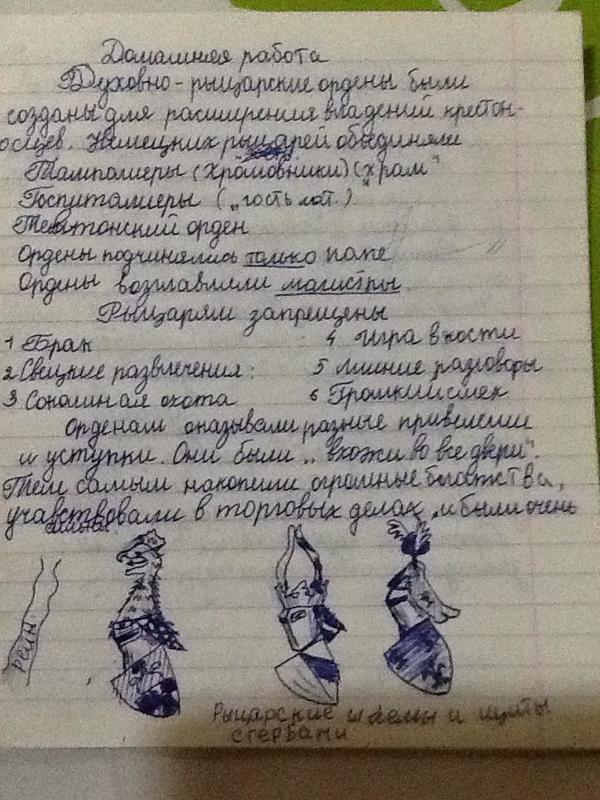 Домашняя работа
Духовно-рыцарские ордены были
созданы для расширения владений крестон-
осцев. Немецких рыцарей объединяли
Тамплиеры (Храмовники) („храм"
Госпиталиеры („гость лат.)
Тевтонский орден
Ордены подчинялись только папе
Ордены возглавляли магистры.
Рыцарям запрещены
1 Брак
2 Свецкие развлечения:
3 Соколиная охота
4 Игра в кости
5 Лишние разговоры
6 Громкий смех
Орденам оказывали разные привелегии
и уступки. Они были „вхожи во все двери".
Тем самым накопили огромные богатства,
учавствовали в торговых делах и были очень
Рейн
Рыцарские шлемы и щиты
с гербами